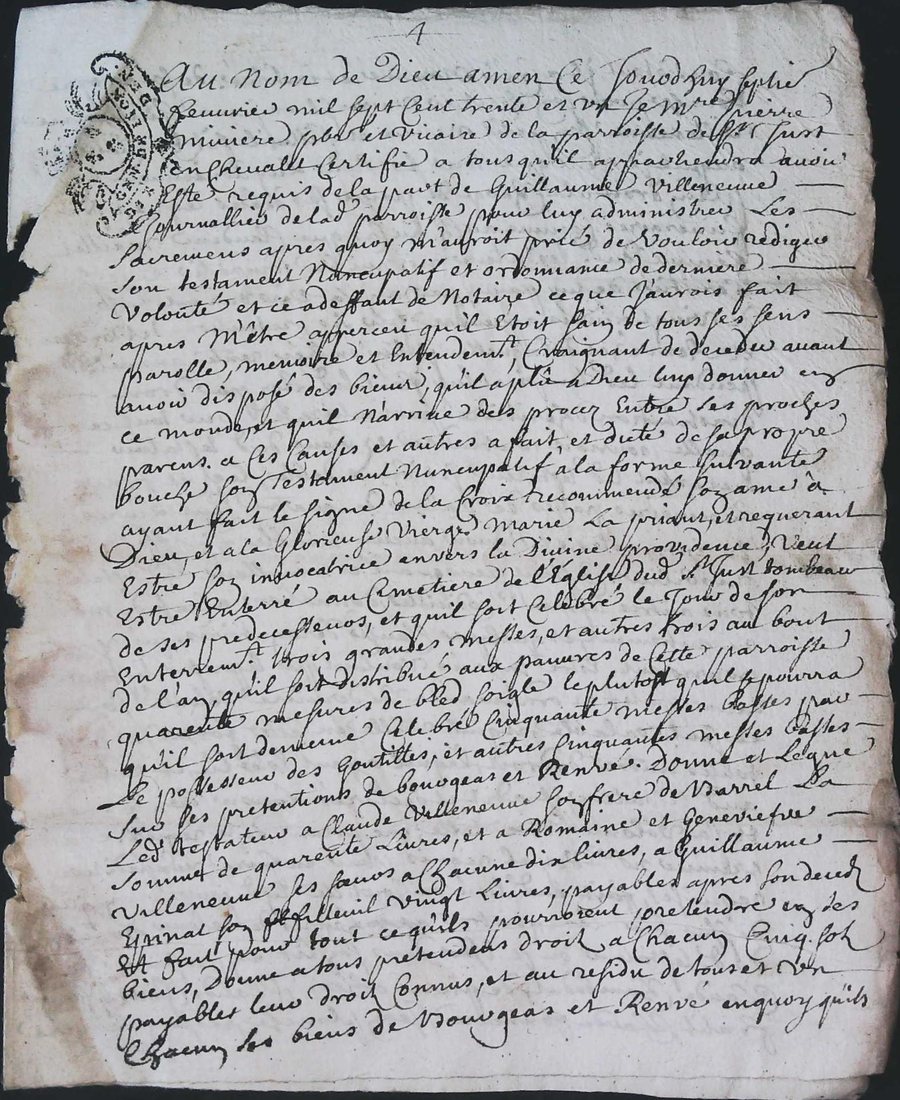 4
Au Nom de Dieu amen Ce Jourdhuy septie
feuvrier mil sept Cent trente et un Je Mre Pierre
miviere pbre et vicaire de la parroisse de St Just
en Chevalt Certifie a tous quil appartiendra avoir
Esté requis de la part de Guillaume Villeneuve
Journallier de lad parroisse pour luy administrer Les
Sacremens apres quoy m'auroit prié de vouloir rediger
son testament Nuncupatif et ordonnance de derniere
volonté et ce adeffaut de Notaire ceque J'aurois fait
apres M'être apperceu quil Etoit sain de tous ses sens
parolle, memoire et Entendemt, Craignant de deceder avant
avoir disposé des biens, qu'il a plû a Dieu luy donner en
ce monde, et quil N'arrive des proces Entre ses proches
parens. a Ces Causes et autres a fait et dicté de sa propre
bouche son Testament Nuncupatif à la forme suivante
ayant fait le signe de la Croix recommendé son ame à
Dieu, et a la Glorieuse Vierge Marie La priant, et requerant
Estre son invocatrice envers la Divine providence, Veut
Estre Enterré au Cimetiere de l'Eglise dud St Just tombeau
de ses predecesseurs, et quil soit Celebré le Jour de son
Enterremt trois grandes messes, et autres trois au bout
de l'an, qu'il soit distribué aux pauvres de Cette parroisse
quarente mesures de bled soigle le plutost quil se pourra
qu'il soit dememe Celebré Cinquante messes basses par
Le possesseur des Goutilles, et autres Cinquantes messes basses
Sur ses pretentions de bourgeas et Renvé. Donne et Legue
Led testateur a Claude Villeneuve son frere de Barrel La
somme de quarente Livres, et a Romaine et Genevieve
villeneuve ses soeurs a Chacune dix livres, a Guillaume
Epinat son filleuil vingt Livres, payables apres son decedz
Et fait pour tout ce qu'ils pourroient pretendre en ses
biens, Donne a tous pretendens droit a Chacun Cinq sols
payables leur droit Connus, et au residu de tous et un
Chacun ses biens de Bourgeas et Renvé enquoy qu'ils